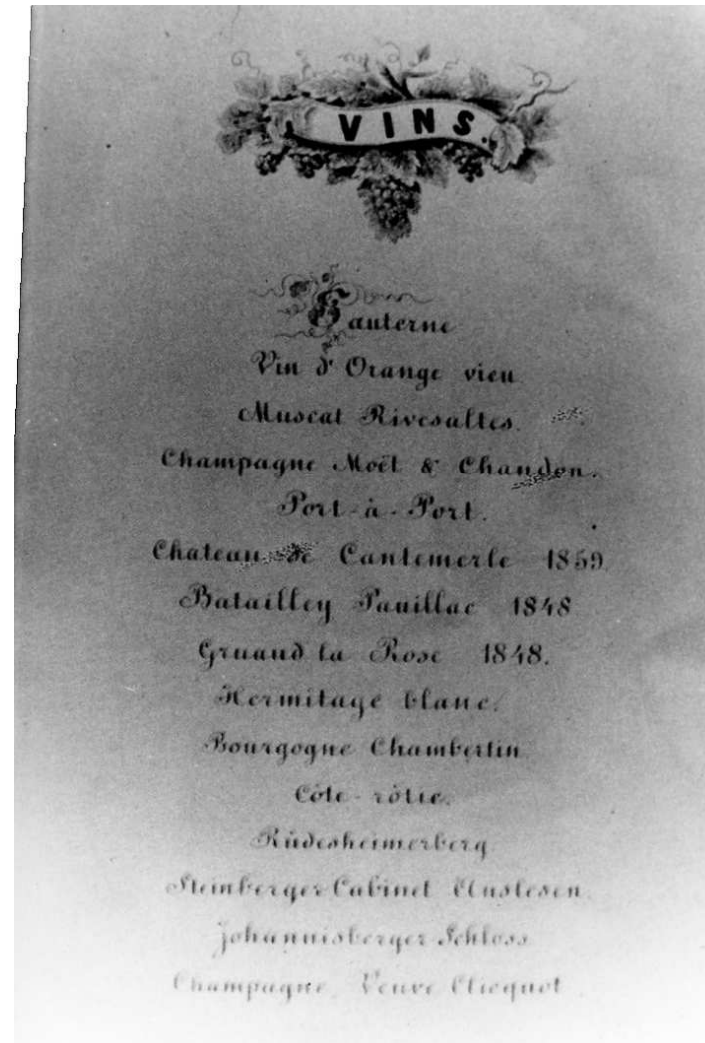 VINS.
Sauterne
Vin d'Orange vieu
Muscat Rivesaltes.
Champagne Moët & Chandon.
Port-à-Port.
Chateau de Cantemerle 1859
Batailley Pauillac 1848
Gruaud la Rose 1848.
Hermitage blanc.
Bourgogne Chambertin
Côte-rôtie.
Rüdesheimerberg
Steinberger Cabinet Auslesen.
Johannisberger Schloss
Champagne Veuve Clicquot